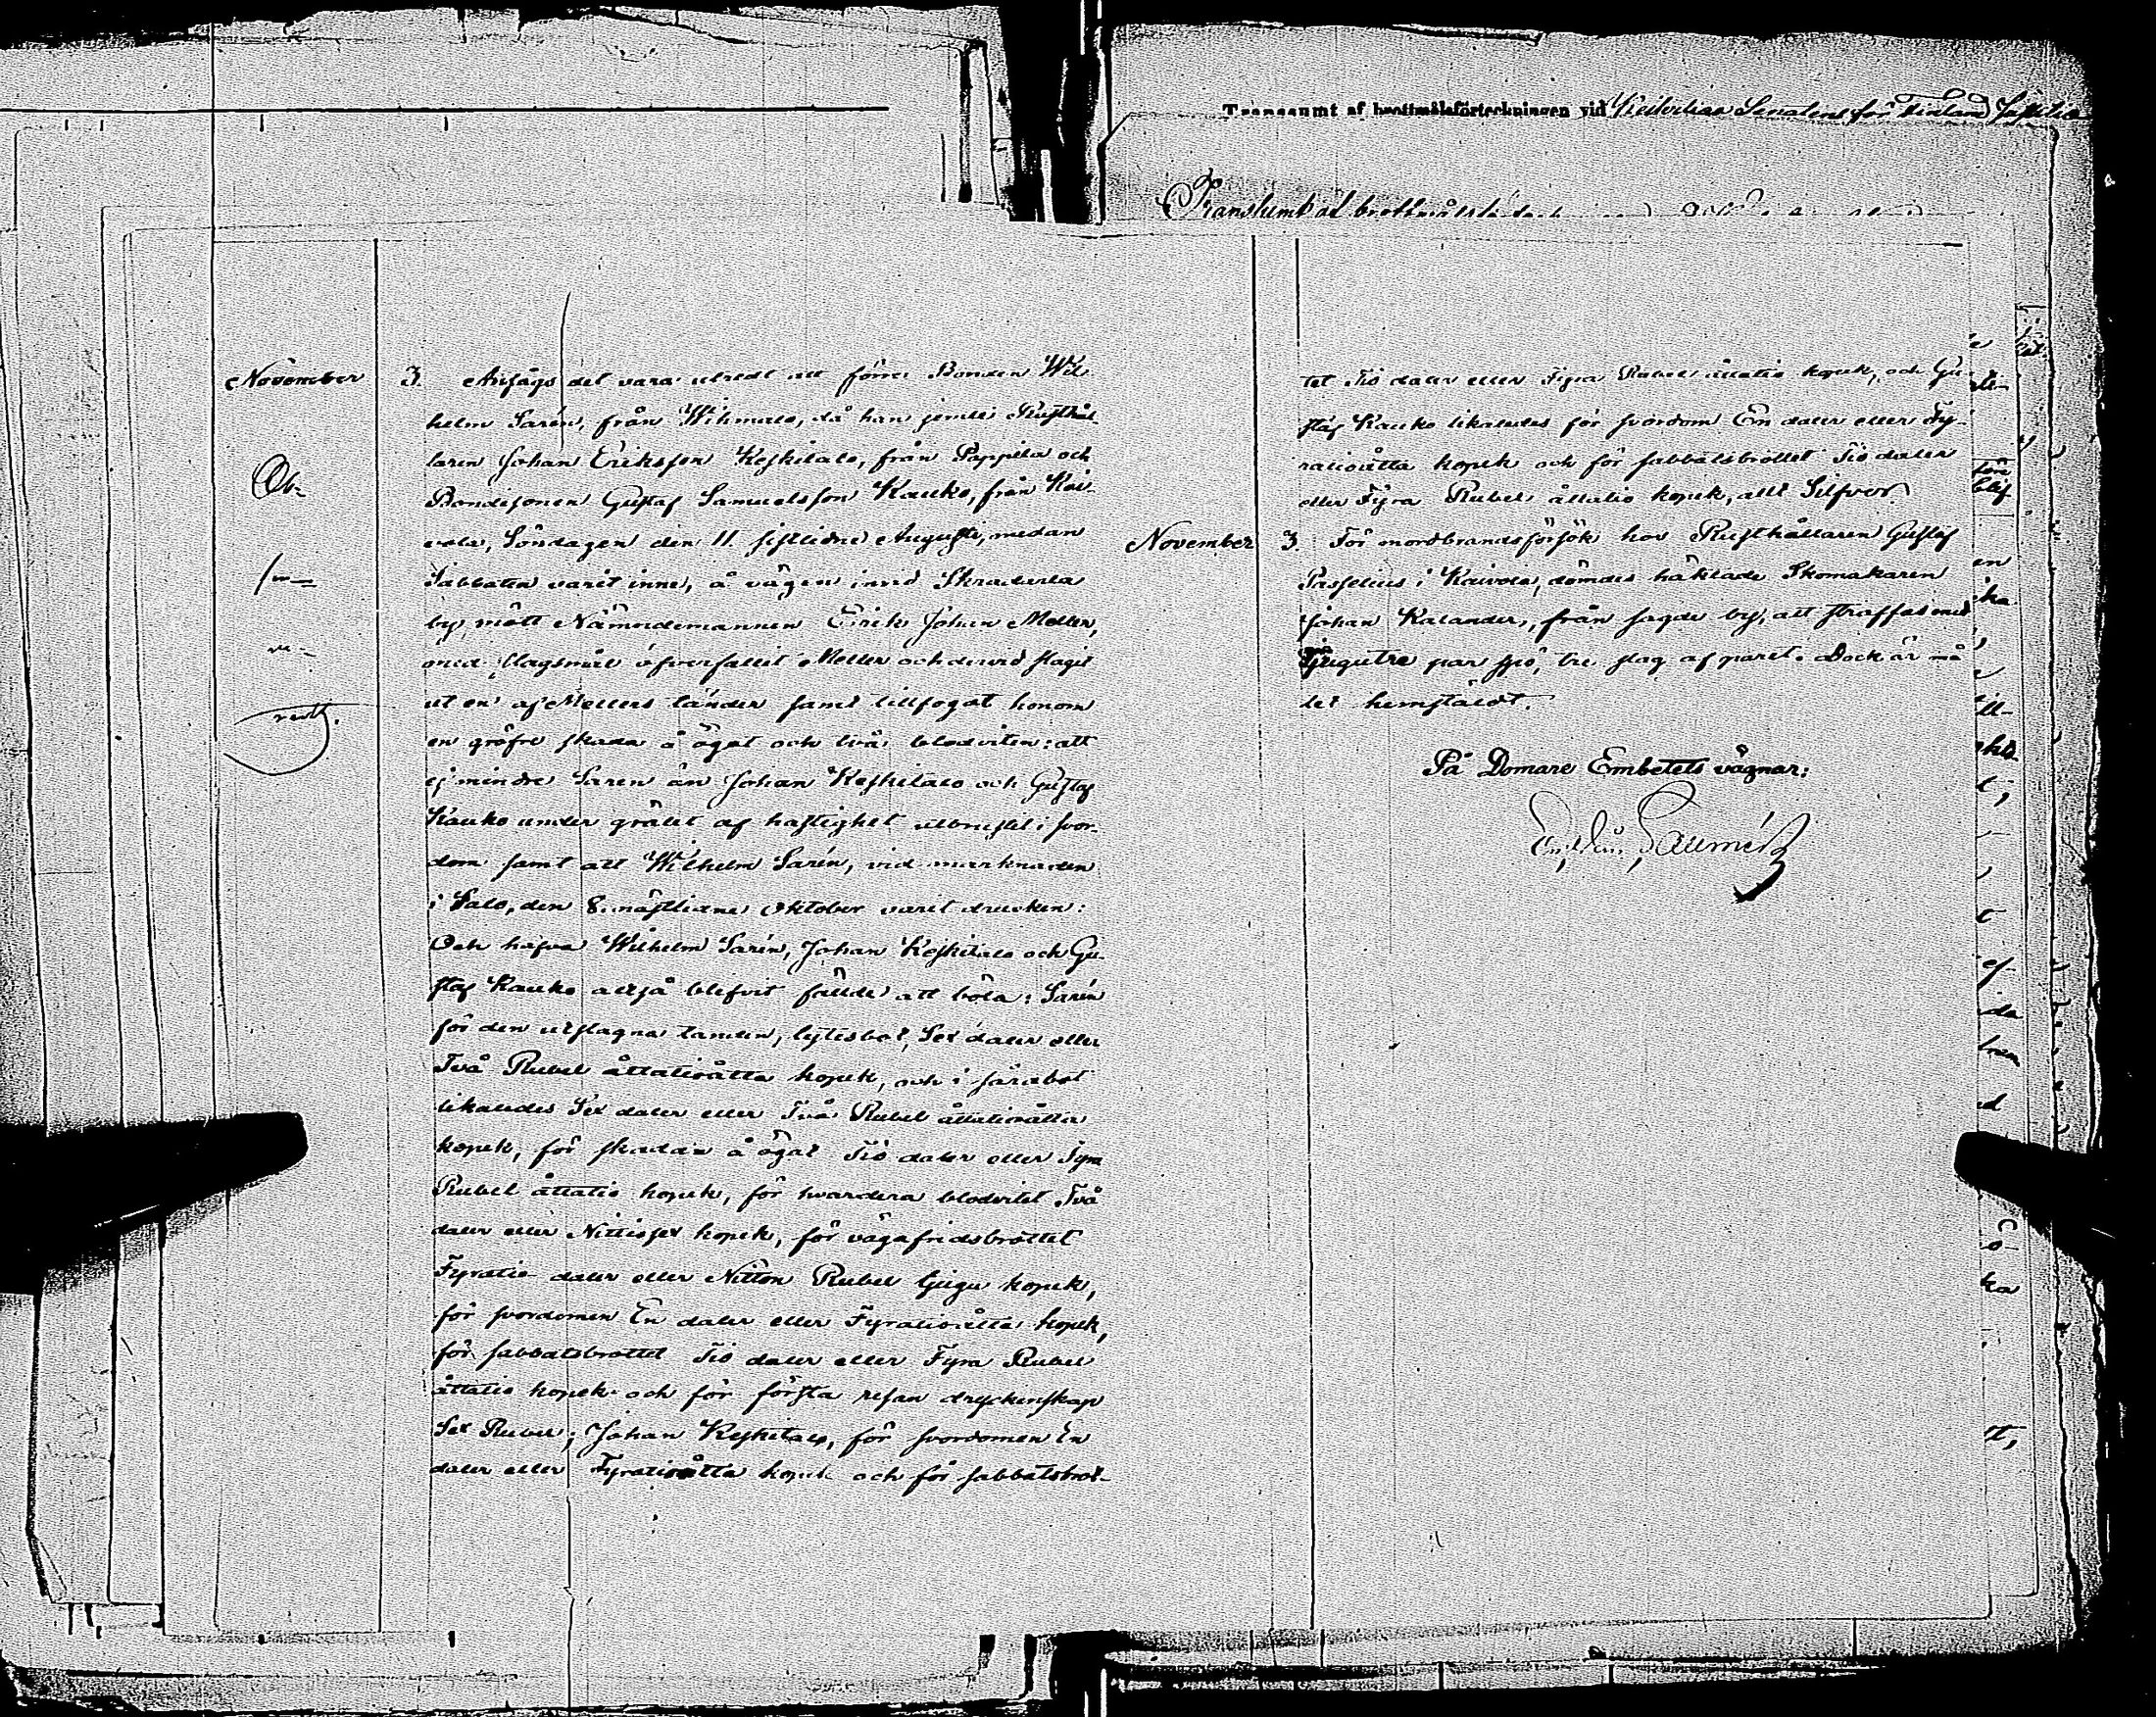 Transsumt af brottmålsförteckningen vid Keiserliga Senatens för Finland Justitie
Transsumt af brottmåls
November 3. Ansågs det vara utredt att förre Bonden Wil-
helm Sarén, från Wihmalo, då han jemte Rusthål-
laren Johan Eriksson Keskitalo, från Pappila och
Bondesonen Gustaf Samuelsson Kauko, från Kai-
vola, Söndagen den 11. sistlidne Augusti, medan
Sabbaten varit inne, å vägen invid Skraderla
by mött Nämndemannen Erik Johan Meller,
med slagsmål öfverfallit Meller och dervid slagit
ut en af Mellers tänder samt tillfogat honom
en gröfre skada å ögat och två blodviten: att
ej mindre Saren än Johan Keskitalo och Gustaf
Kauko under grälet af hastighet utbrustit i svor-
dom samt att Wilhelm Sarén, vid marknaden
i Salo, den 8. nästlidne Oktober varit drucken:
Och hafva Wilhelm Sarén, Johan Keskitalo och Gu-
staf Kauko altså blefvit fällde att böta: Sarén
för den utslagna tanden, lytesbot, Sex daler eller
Två Rubel åttatioåtta kopek, och i sårabot
likaledes Sex daler eller Två Rubel åttatioåtta
kopek, för skadan å ögat Tio daler eller Fyra
Rubel åttatio kopek, för hvardera blodvitet Två
daler eller Nittiosex kopek, för vägafridsbrottet
Fyratio daler eller Nitton Rubel tjugu kopek,
för svordomen En daler eller Fyratioåtta kopek,
för sabbatsbrottet Tio daler eller Fyra Rubel
åttatio kopek och för första resan dryckenskap
Sex Rubel; Johan Keskitalo, för svordomen En
daler eller Fyratioåtta kopek och för sabbatsbrot-
tet Tio daler eller Fyra Rubel åttatio kopek, och Gu-
staf Kauko likaledes för svordom En daler eller Fy-
ratioåtta kopek och för sabbatsbrottet Tio daler
eller Fyra Rubel åttatio kopek, allt Silfver.
November 3. För mordbrandsförsök hos Rusthållaren Gustaf
Passelius i Kaivola, dömdes häktade Skomakaren
Johan Kalander, från sagde by, att straffas med
Tjugutre par spö, tre slag af paret. Dock är må-
let hemstäldt.
På Domare Embetets vägnar: